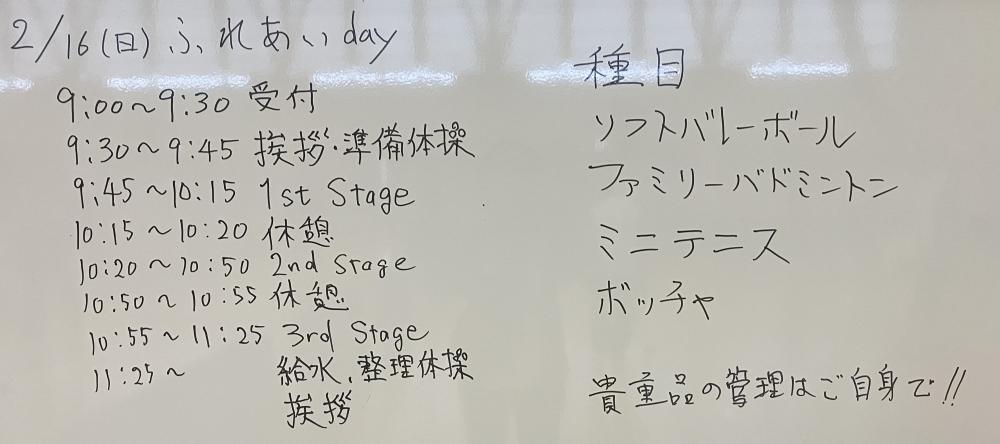 2/16(日) ふれあいday
9:00〜9:30 受付
9:30〜9:45 挨拶・準備体操
9:45〜10:15 1st Stage
10:15〜10:20 休憩
10:20〜10:50 2nd Stage
10:50〜10:55 休憩
10:55〜11:25 3rd Stage
11:25〜 給水、整理体操
挨拶
種目
ソフトバレーボール
ファミリーバドミントン
ミニテニス
ボッチャ
貴重品の管理はご自身で!!